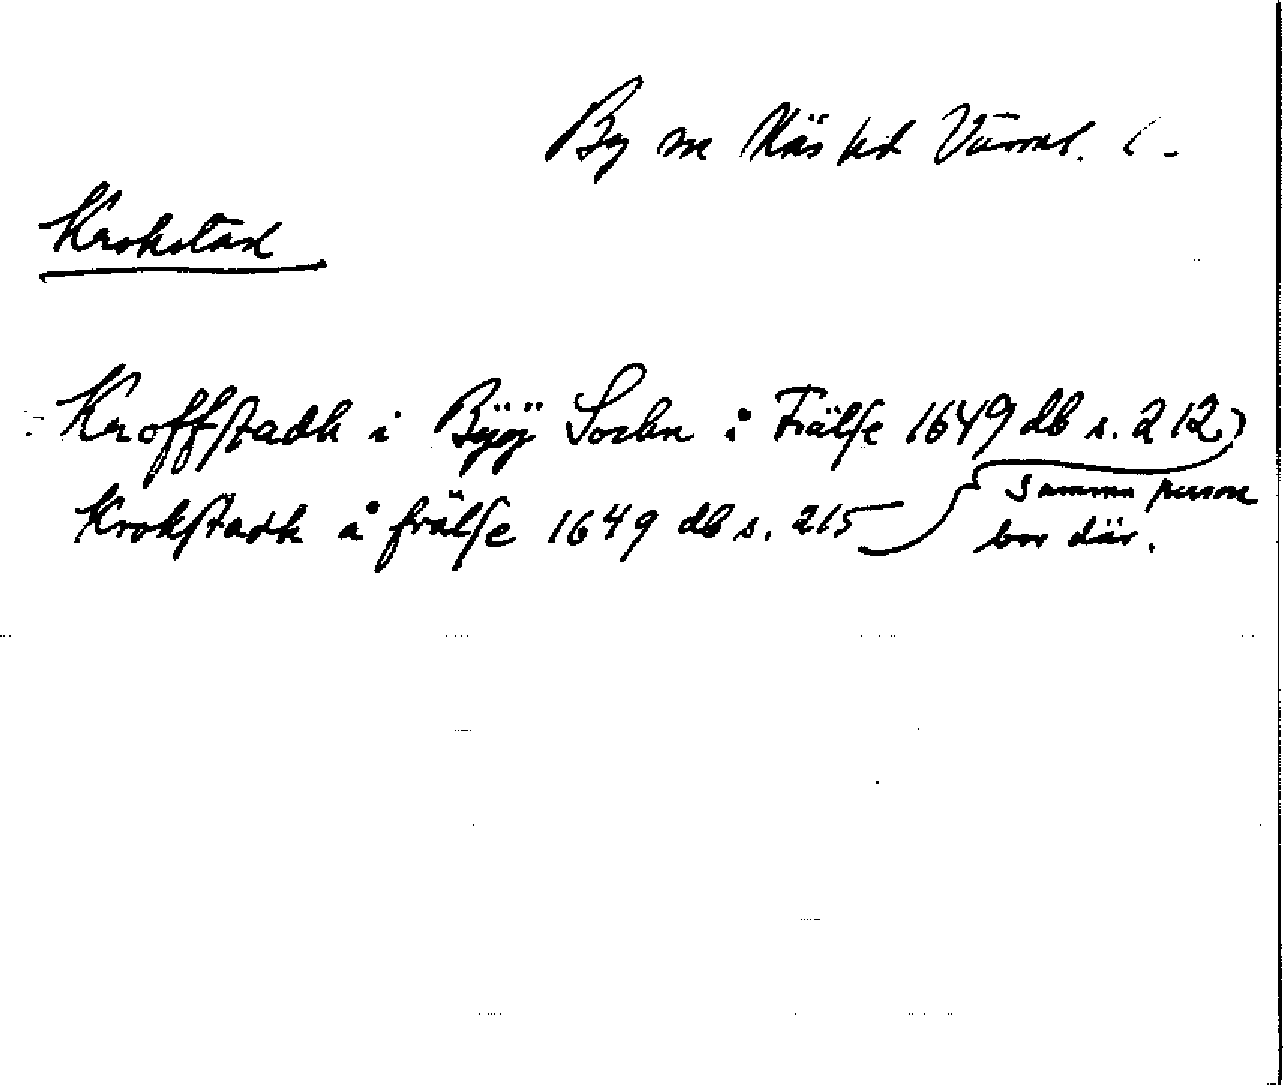 By sn Näs hd Värml. l.
Krokstad
Kroffstadh i Bÿÿ Sochn : Frälse 1649 db s. 212
Samma person
Krokstadh å frälse 1649 db s. 215
bor där.